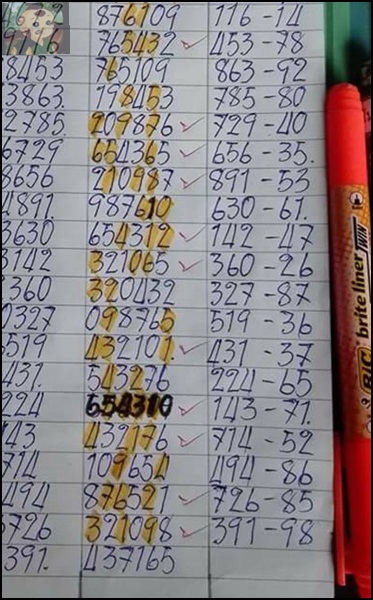 876109 116-14
9116 765432 453-78
8453 765109 863-92
3863. 198453 785-80
2785. 209876 729-40
6729 654365 656-35.
8656 210987 891-53
4891. 987610 630-61.
3630 654312 142-47
3142 321065 360-26
360 320432 327-87
0327 098765 519-36
519 432101. 431-37
431. 543276 224-65
224 654310 143-71.
143 432176 714-52
714 109654 494-86
494 876521 726-85
3726 321098 391-98
391. 437165
BIC brite liner TWIN